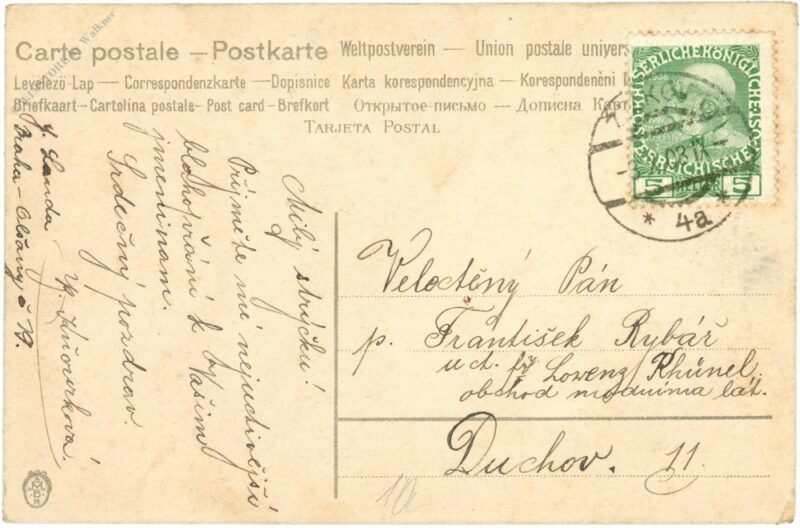 Carte postale – Postkarte Weltpostverein – Union postale univers
Levelező-Lap – Correspondenzkarte – Dopisnice Karta korespondencyjna – Korespondenčni
Briefkaart – Cartolina postale – Post card – Brefkort Открытое-письмо – Дописна
TARJETA POSTAL
Milý strýčku!
Přijměte mé nejuctivější
blahopřání k Vašim
jmeninám.
Srdečný pozdrav
J. Landa
Praha-Olšany č 79.
KAISERLICHE KÖNIGLICHE
ÖSTERREICHISCHE
5 HELLER 5
* 4a *
Velectěný Pán
p. František Rybář
uct. fy Lorenz
obchod
Duchov. 11.
10